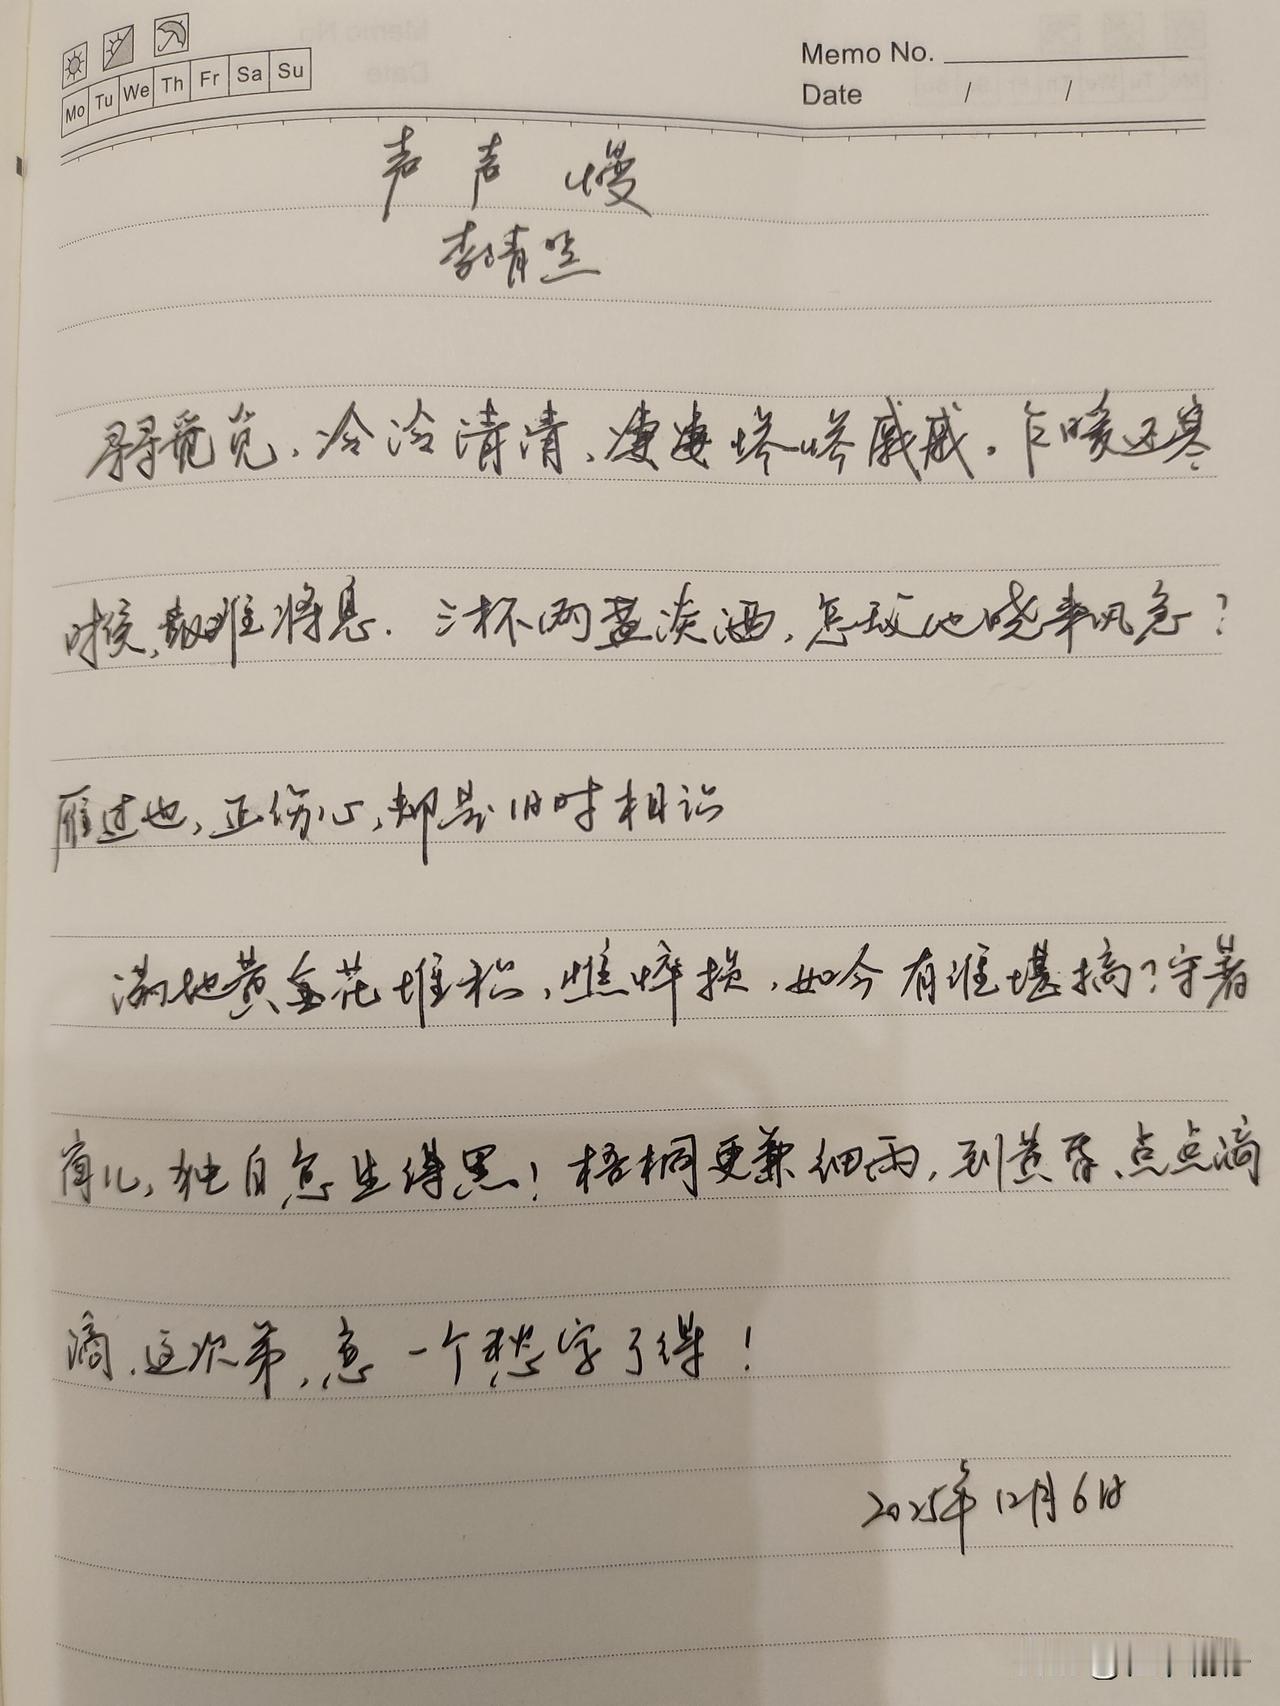 Mo Tu We Th Fr Sa Su
Memo No.
Date / /
声声慢
李清照
寻寻觅觅,冷冷清清,凄凄惨惨戚戚。乍暖还寒
时候,最难将息.三杯两盏淡酒,怎敌他晓来风急?
雁过也,正伤心,却是旧时相识
满地黄金花堆积,憔悴损,如今有谁堪摘?守著
窗儿,独自怎生得黑!梧桐更兼细雨,到黄昏、点点滴
滴.这次第,怎一个愁字了得!
2025年12月6日